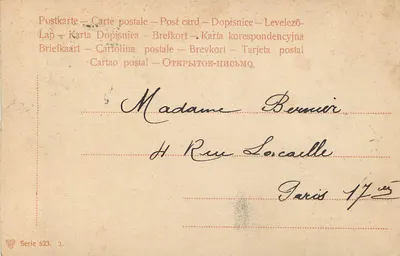 Postkarte – Carte postale – Post card – Dopisnice – Levelező-
Lap – Karta Dopisnica – Brefkort – Karta korespondencyjna
Briefkaart – Cartolina postale – Brevkort – Tarjeta postal
Cartao postal – Открытое-письмо.
Madame Bernier
4 Rue Lacaille
Paris 17es
Serie 523. 2.